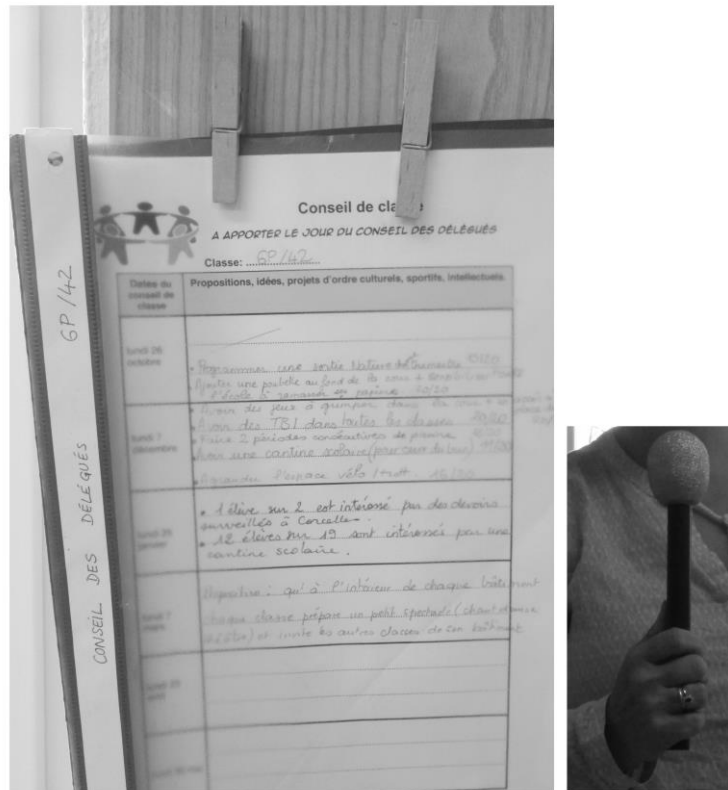 CONSEIL DES DÉLÉGUÉS 6P/42
Conseil de
A APPORTER LE JOUR DU CONSEIL DES DÉLÉGUÉS
Classe: 6P/42
Dates du conseil de classe
Propositions, idées, projets d'ordre culturels, sportifs, intellectuels.
lundi 26 octobre
• Programmer une sortie Nature 10/20
• Ajouter une poubelle au fond de la cour +
l'école à ramasser papiers 20/20
lundi 7 décembre
• Avoir des jeux à grimper dans la cour
• Avoir des TBI dans toutes les classes 20/20
• Faire 2 périodes consécutives de piscine
• Avoir une cantine scolaire
• Agrandir l'espace vélo/trott.
lundi 25 janvier
• 1 élève sur 2 est intéressé par des devoirs
surveillés à Corcelles.
• 12 élèves sur 19 sont intéressés par une
cantine scolaire.
lundi 7 mars
: qu'à l'intérieur de chaque bâtiment
chaque classe prépare un petit spectacle (chant danse
théâtre) et invite les autres classes de son bâtiment
lundi
lundi